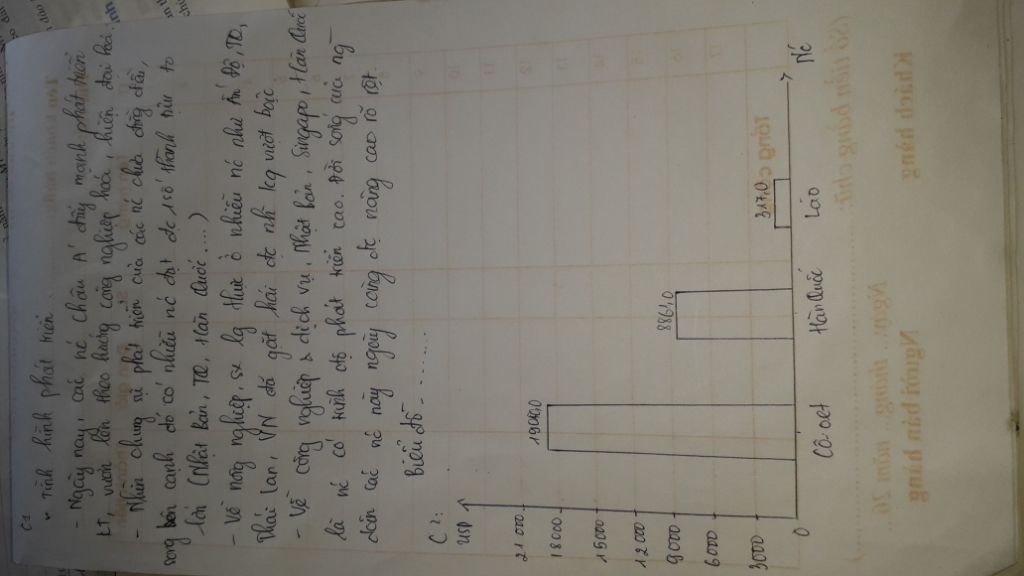 C1
Tình hình phát triển.
- Ngày nay, các nc Châu Á đẩy mạnh phát triển
KT, vươn lên theo hướng công nghiệp hoá, hiện đại hoá.
- Nhìn chung sự phát triển của các nc chưa đồng đều,
song bên cạnh đó có nhiều nc đạt đc 1 số thành tựu to
lớn (Nhật bản, TQ, Hàn Quốc,...)
- Về nông nghiệp, sx lg thực ở nhiều nc như Ấn độ, TQ,
Thái Lan, VN đã gặt hái đc nh kq vượt bậc
- Về công nghiệp & dịch vụ, Nhật bản, Singapo, Hàn Quốc
là nc có trình độ phát triển cao. Đời sống của ng
dân các nc này ngày càng đc nâng cao rõ rệt.
Biểu đồ
C2:
USD
21000
18000
15000
12000
9000
6000
3000
0
19040,0
8861,0
317,0
Cô-oet
Hàn Quốc
Lào
Nc
Khách hàng
Người bán hàng
(Số tiền bằng chữ
Tổng c
Ngày... tháng... năm 20